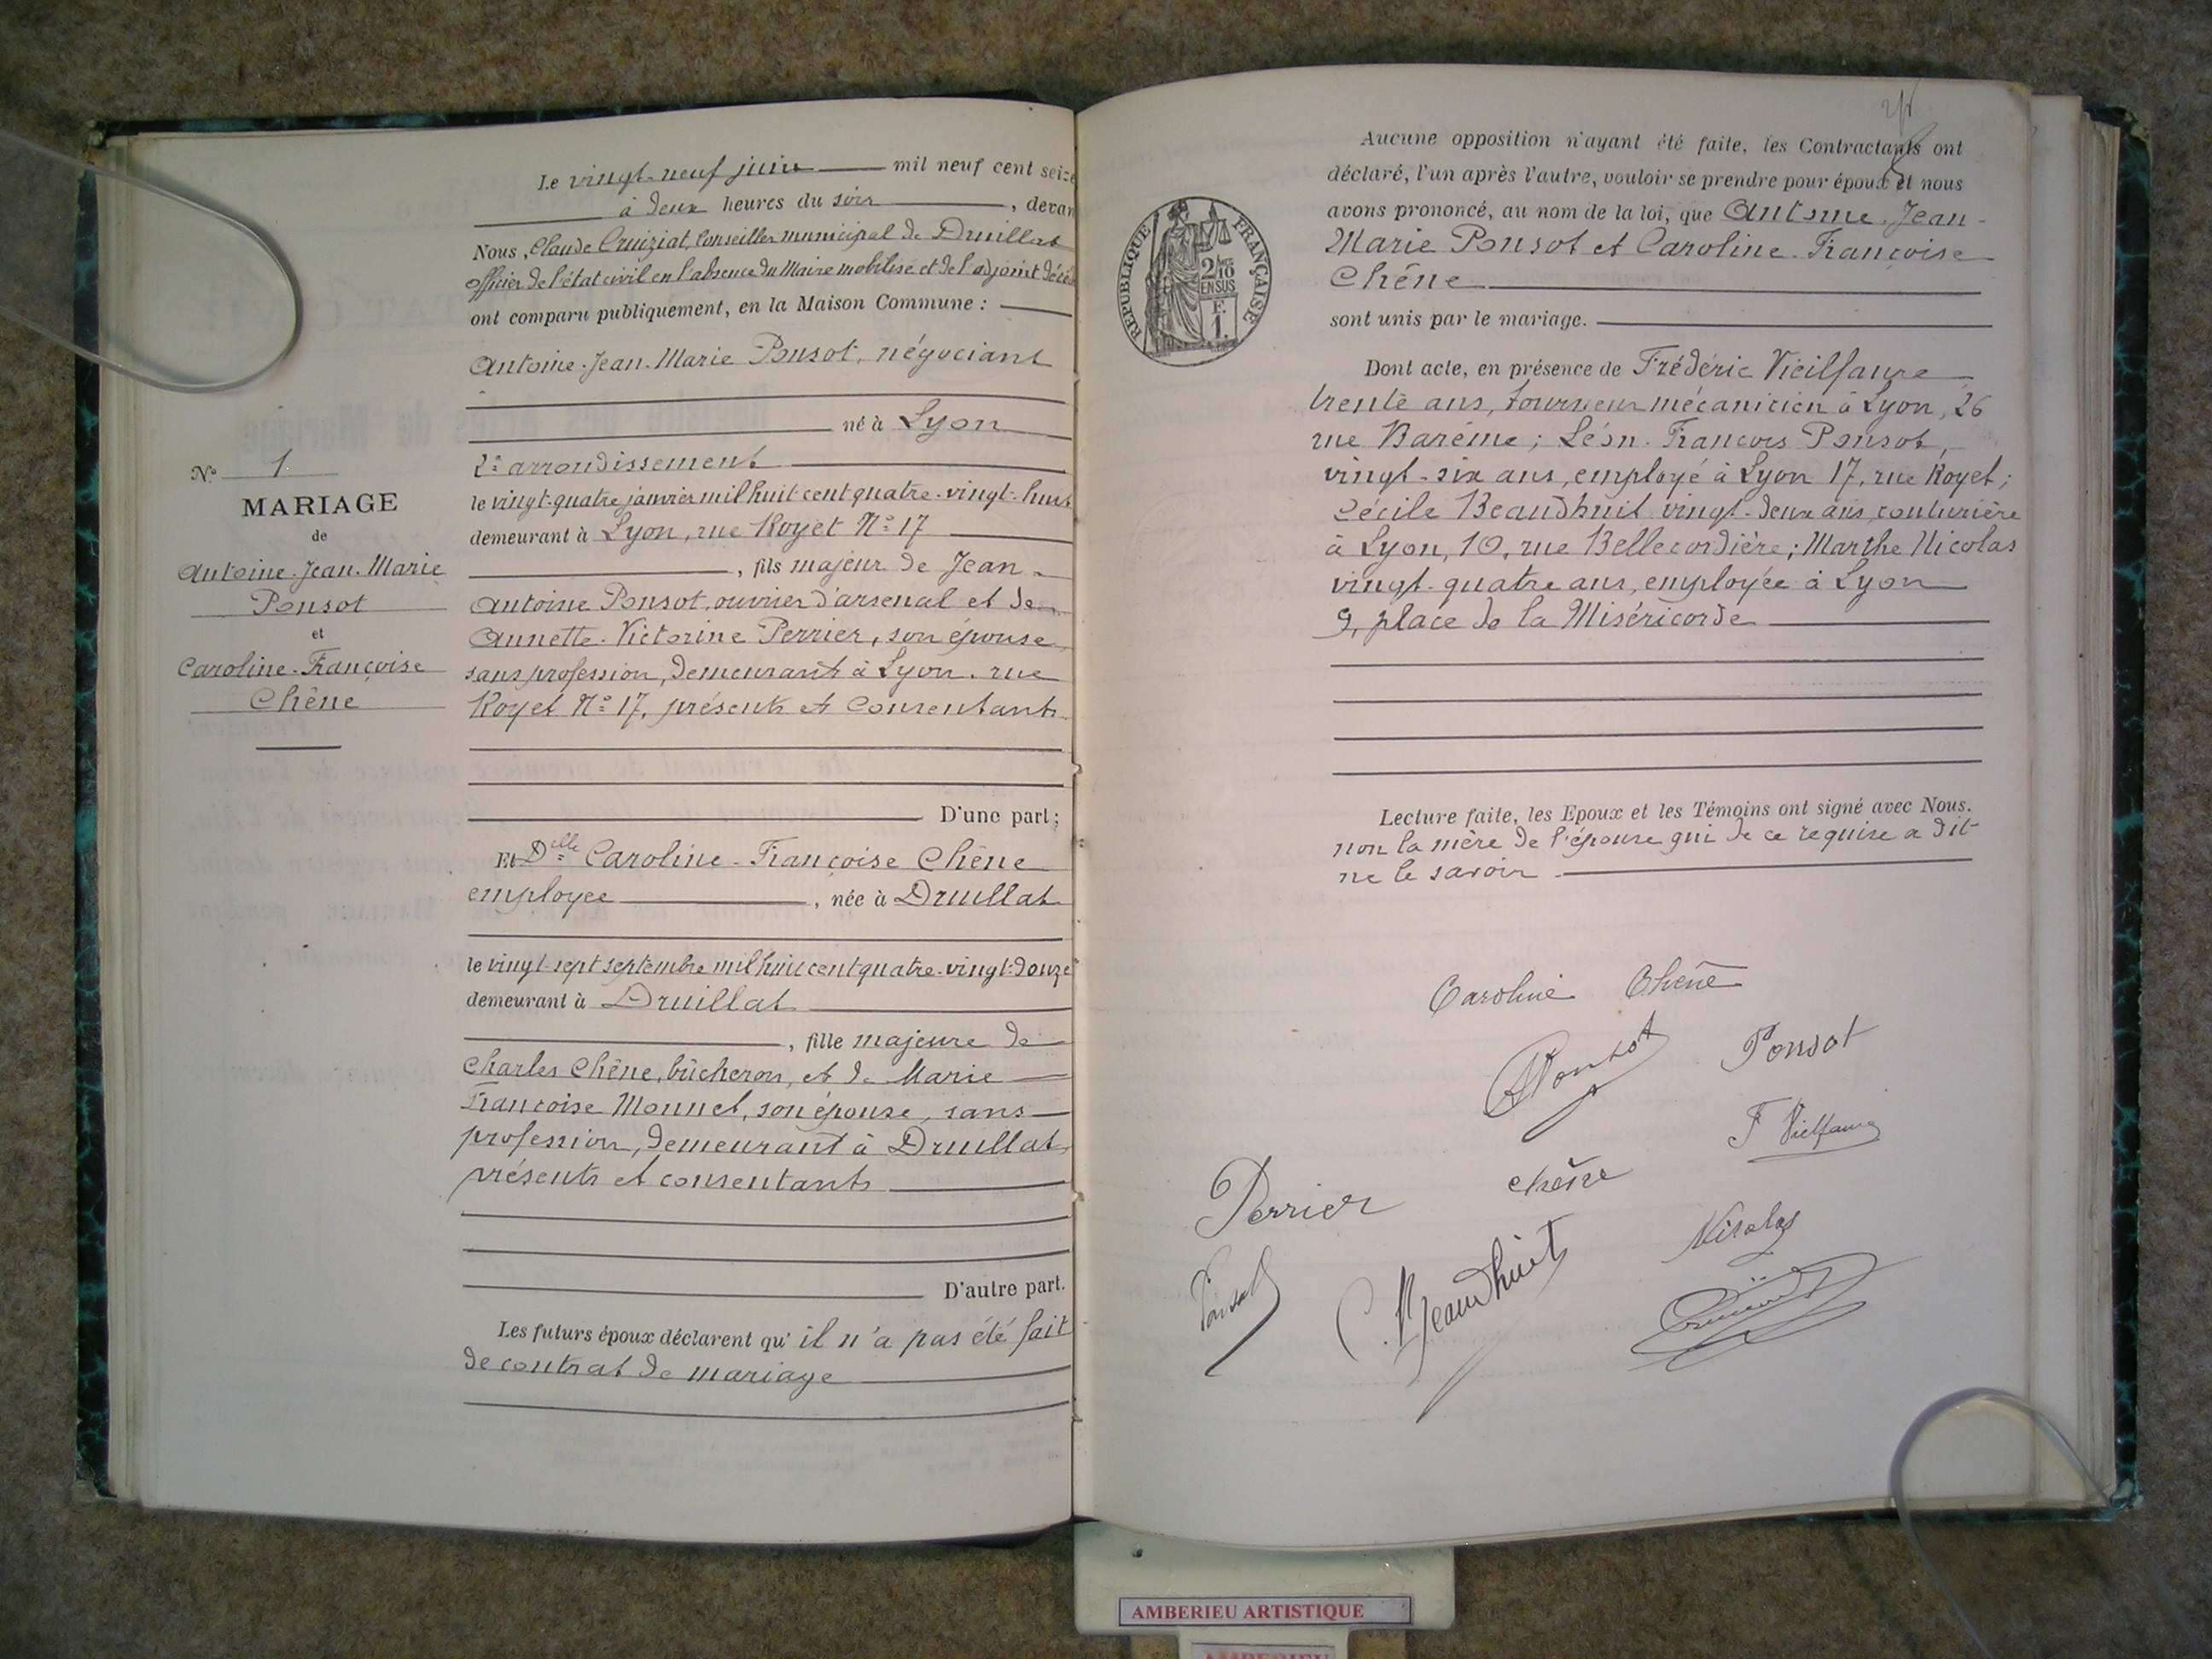 Le vingt-neuf juin mil neuf cent seize
à deux heures du soir, devan
Nous, Claude Cruiziat, Conseiller municipal de Druillat
officier de l'état civil en l'absence du Maire mobilisé et de l'adjoint décé
ont comparu publiquement, en la Maison Commune :
Antoine-Jean-Marie Ponsot, négociant
né à Lyon
2e arrondissement
le vingt-quatre janvier mil huit cent quatre-vingt-huit
demeurant à Lyon, rue Royet No 17
, fils majeur de Jean-
Antoine Ponsot, ouvrier d'arsenal et de
Annette-Victorine Perrier, son épouse
sans profession, demeurants à Lyon, rue
Royet No 17, présents et consentants
D'une part;
Et Dlle Caroline-Françoise Chêne
employée, née à Druillat
le vingt-sept septembre mil huit cent quatre-vingt-douze
demeurant à Druillat
, fille majeure de
Charles Chêne, bûcheron, et de Marie
Françoise Monnet, son épouse, sans
profession, demeurant à Druillat
présents et consentants
D'autre part.
Les futurs époux déclarent qu'il n'a pas été fait
de contrat de mariage
No 1
MARIAGE
de
Antoine-Jean-Marie
Ponsot
et
Caroline-Françoise
Chêne
Aucune opposition n'ayant été faite, les Contractants ont
déclaré, l'un après l'autre, vouloir se prendre pour époux et nous
avons prononcé, au nom de la loi, que Antoine-Jean-
Marie Ponsot et Caroline-Françoise
Chêne
sont unis par le mariage.
Dont acte, en présence de Frédéric Vieilfaure
trente ans, tourneur mécanicien à Lyon, 26
rue Barême; Léon-François Ponsot,
vingt-six ans, employé à Lyon 17, rue Royet;
Cécile Beaudhuit vingt-deux ans, couturière
à Lyon, 10, rue Bellecordière; Marthe Nicolas
vingt-quatre ans, employée à Lyon
9, place de la Miséricorde
Lecture faite, les Epoux et les Témoins ont signé avec Nous.
non la mère de l'épouse qui de ce requise a dit
ne le savoir
RÉPUBLIQUE FRANÇAISE
2/10
EN SUS
F.
1.
Caroline Chêne
Ponsot
Ponsot
F Vielfaure
Perrier
chêne
Nicolas
Ponsot
C. Beaudhuit
AMBERIEU ARTISTIQUE
AMBERIEU